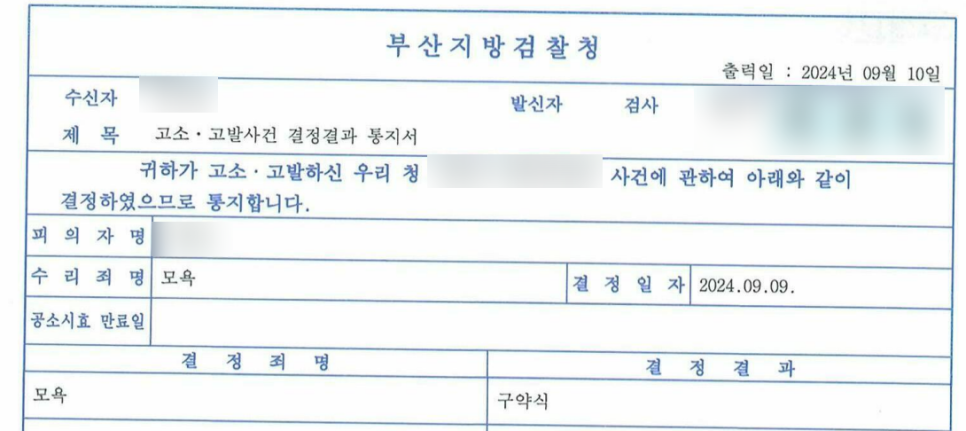 부산지방검찰청
출력일 : 2024년 09월 10일
수신자 발신자 검사
제 목 고소·고발사건 결정결과 통지서
귀하가 고소·고발하신 우리 청 사건에 관하여 아래와 같이
결정하였으므로 통지합니다.
피 의 자 명
수 리 죄 명 모욕 결 정 일 자 2024.09.09.
공소시효 만료일
결 정 죄 명 결 정 결 과
모욕 구약식